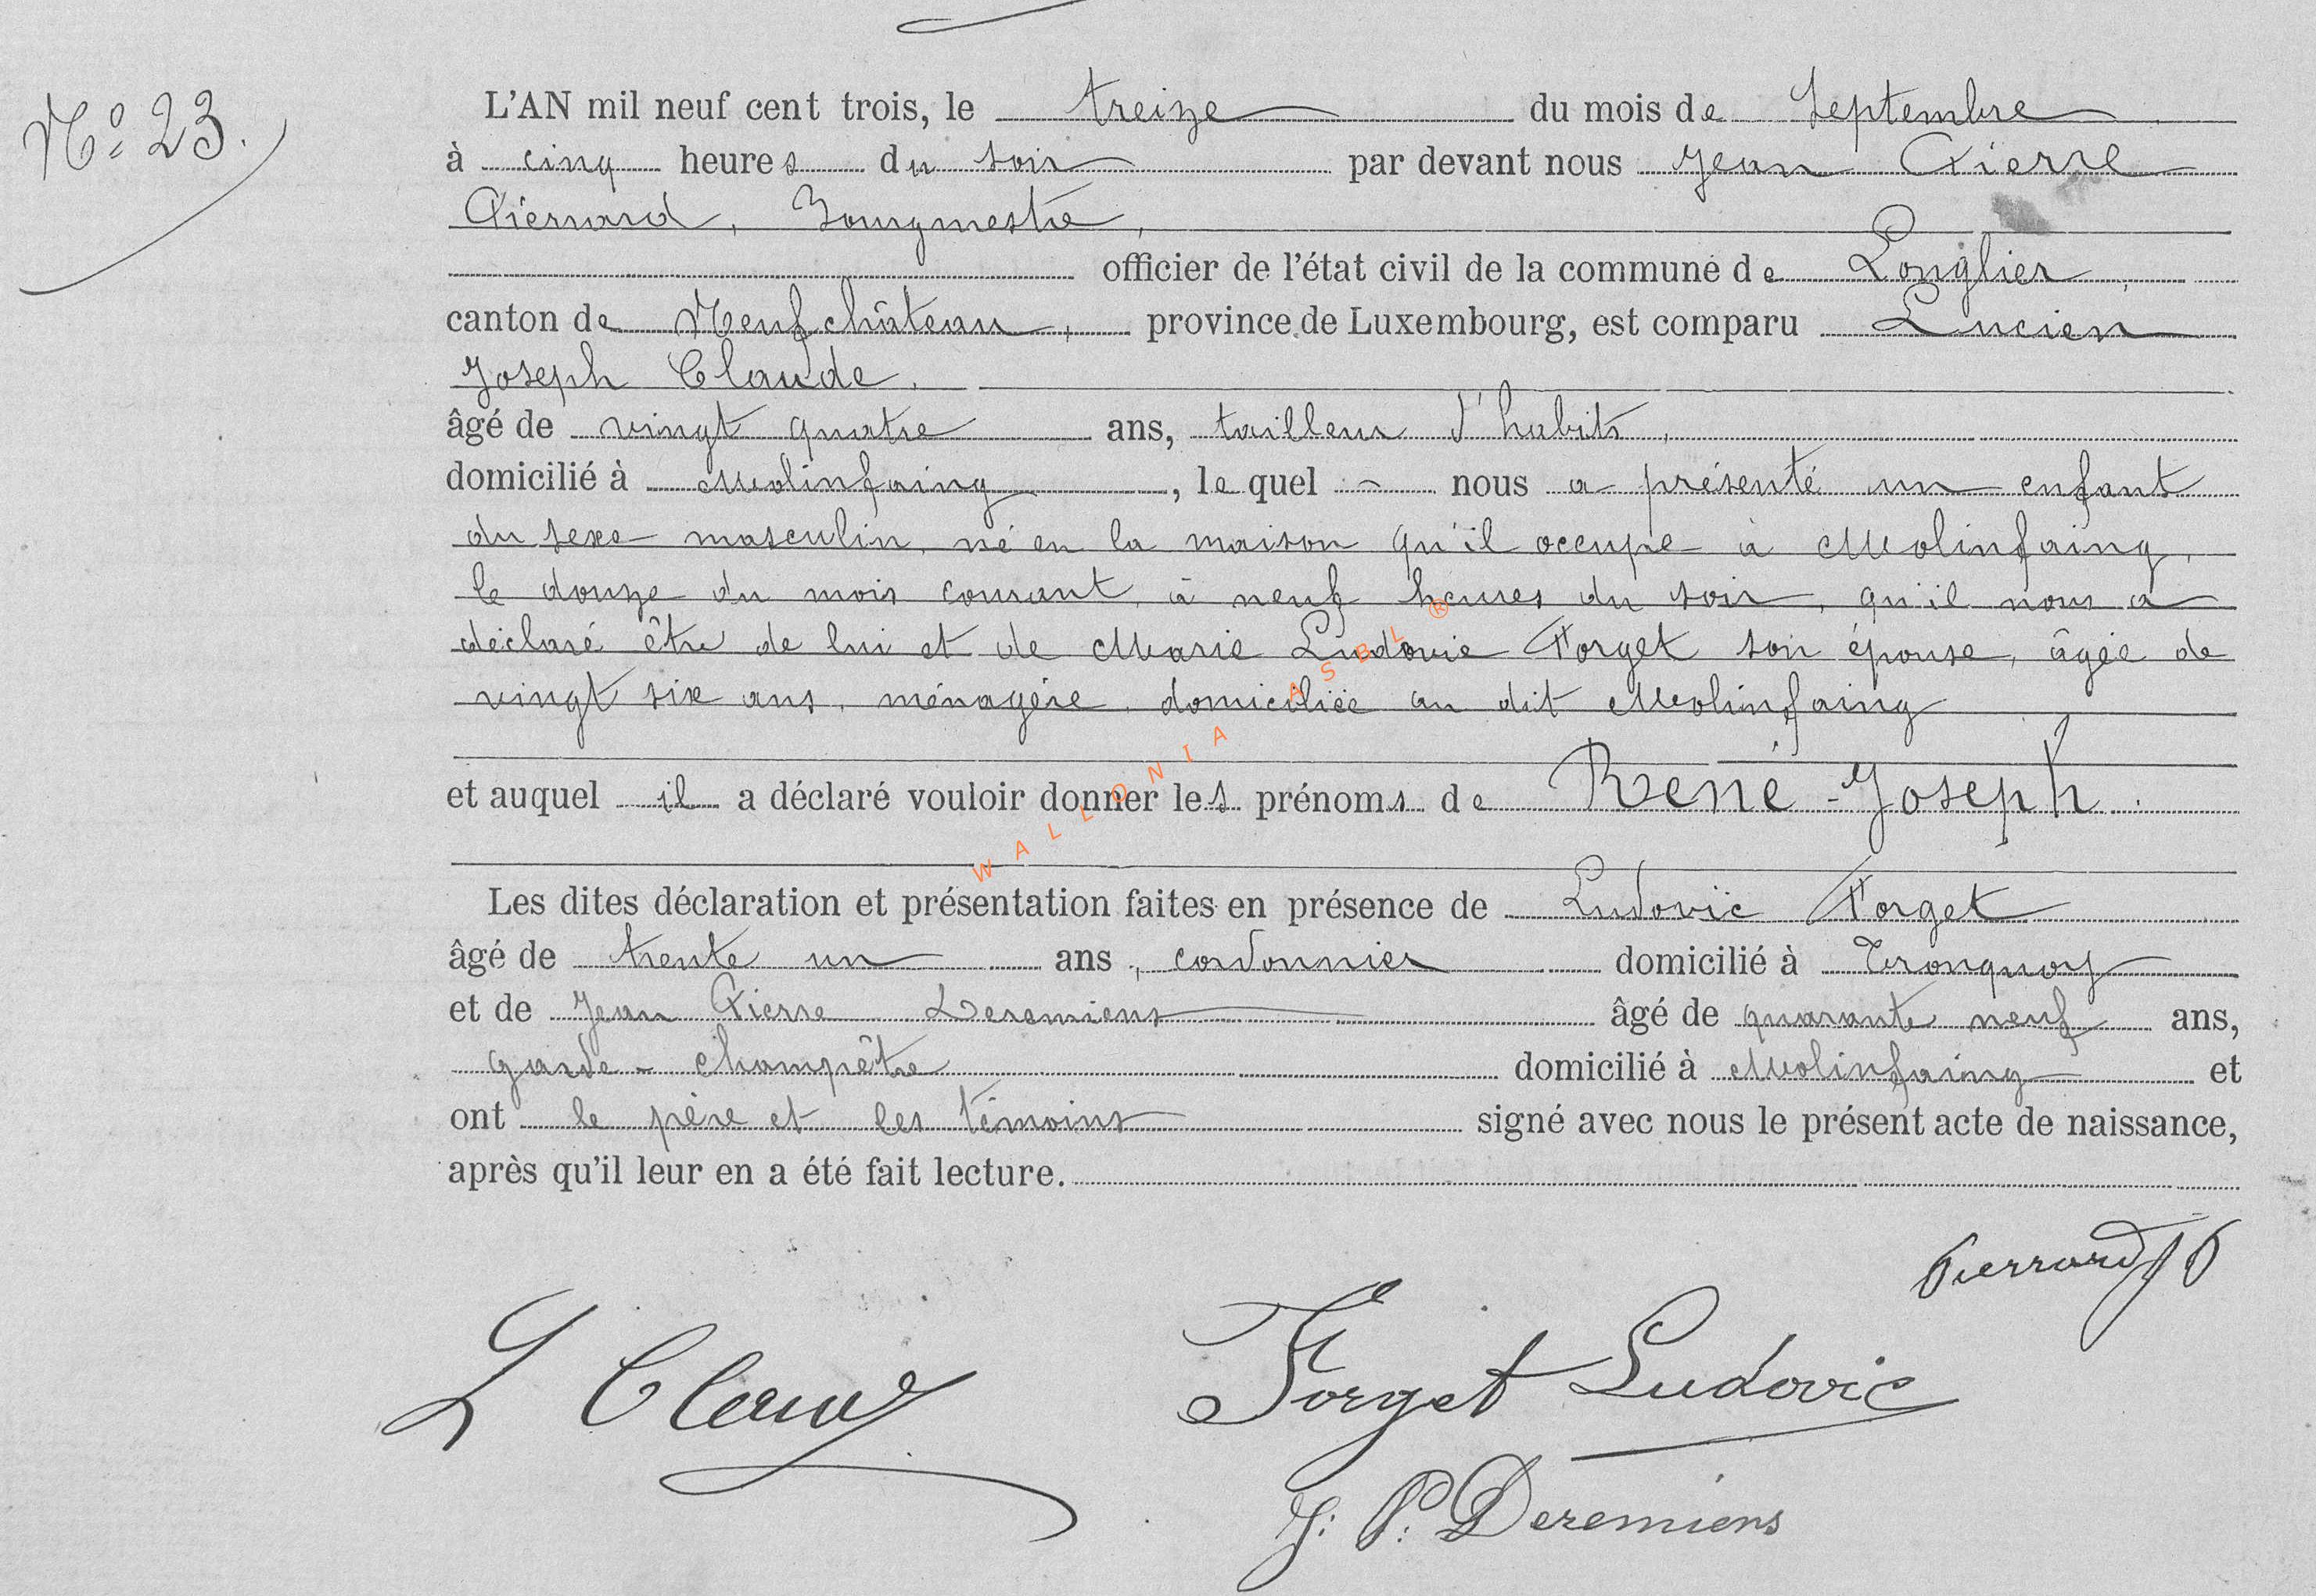 N° 23.
L'AN mil neuf cent trois, le treize du mois de Septembre
à cinq heures du soir par devant nous Jean Pierre
Pierrard, Bourgmestre,
officier de l'état civil de la commune de Longlier,
canton de Neufchâteau, province de Luxembourg, est comparu Lucien
Joseph Claude,
âgé de vingt quatre ans, tailleur d'habits,
domicilié à Molinfaing, le quel nous a présenté un enfant
du sexe masculin, né en la maison qu'il occupe à Molinfaing,
le douze du mois courant, à neuf heures du soir, qu'il nous a
déclaré être de lui et de Marie Ludovie Forget son épouse, âgée de
vingt six ans, ménagère, domiciliée au dit Molinfaing
et auquel il a déclaré vouloir donner les prénoms de René-Joseph.
Les dites déclaration et présentation faites en présence de Ludovic Forget
âgé de trente un ans, cordonnier domicilié à Tronquoy
et de Jean Pierre Deremiens âgé de quarante neuf ans,
garde-champêtre domicilié à Molinfaing et
ont le père et les témoins signé avec nous le présent acte de naissance,
après qu'il leur en a été fait lecture.
Pierrard JP
L Claude
Forget Ludovic
J: P: Deremiens
WALLONIA ASBL ®